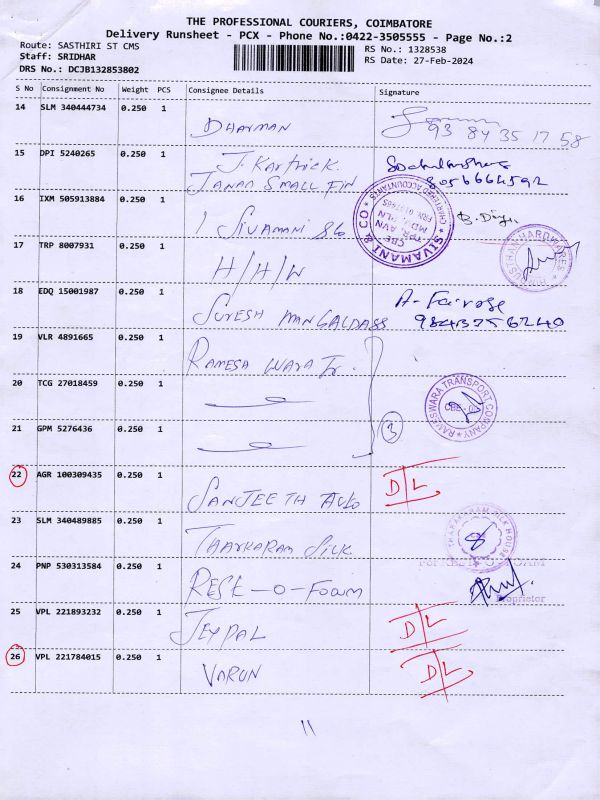 THE PROFESSIONAL COURIERS, COIMBATORE
Delivery Runsheet - PCX - Phone No.:0422-3505555 - Page No.:2
Route: SASTHIRI ST CMS
RS No.: 1328538
Staff: SRIDHAR
RS Date: 27-Feb-2024
DRS No.: DCJB132853802
S No Consignment No Weight PCS Consignee Details Signature
14 SLM 340444734 0.250 1
DHARMAN
93 84 35 17 58
15 DPI 5240265 0.250 1
J. Kartrick.
8056664592
JANAA SMALL FIN
16 IXM 505913884 0.250 1
SIVAMANI &
CHARTERED ACCOUNTANTS
SIVAMANI & CO
CBE
17 TRP 8007931 0.250 1
H/H/W
HARDWARES
18 EDQ 15001987 0.250 1
SURESH MANGALDASS
A- Fairose
9843756240
19 VLR 4891665 0.250 1
RAMESA WARA Tr.
20 TCG 27018459 0.250 1
RAMESWARA TRANSPORT COMPANY
CBE
21 GPM 5276436 0.250 1
3
22 AGR 100309435 0.250 1
SANJEETH AUTO
D L
23 SLM 340489885 0.250 1
THARKARAM SILK
SILK HOUSE
24 PNP 530313584 0.250 1
REST-O-FOAM
Proprietor
25 VPL 221893232 0.250 1
JEYPAL
D L
26 VPL 221784015 0.250 1
VARUN
D L
11